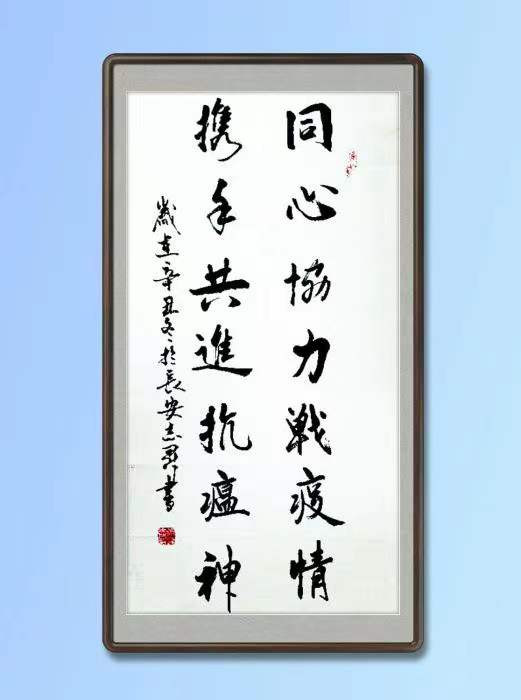 同心協力戰疫情
攜手共進抗瘟神
歲在辛丑冬於長安志
書